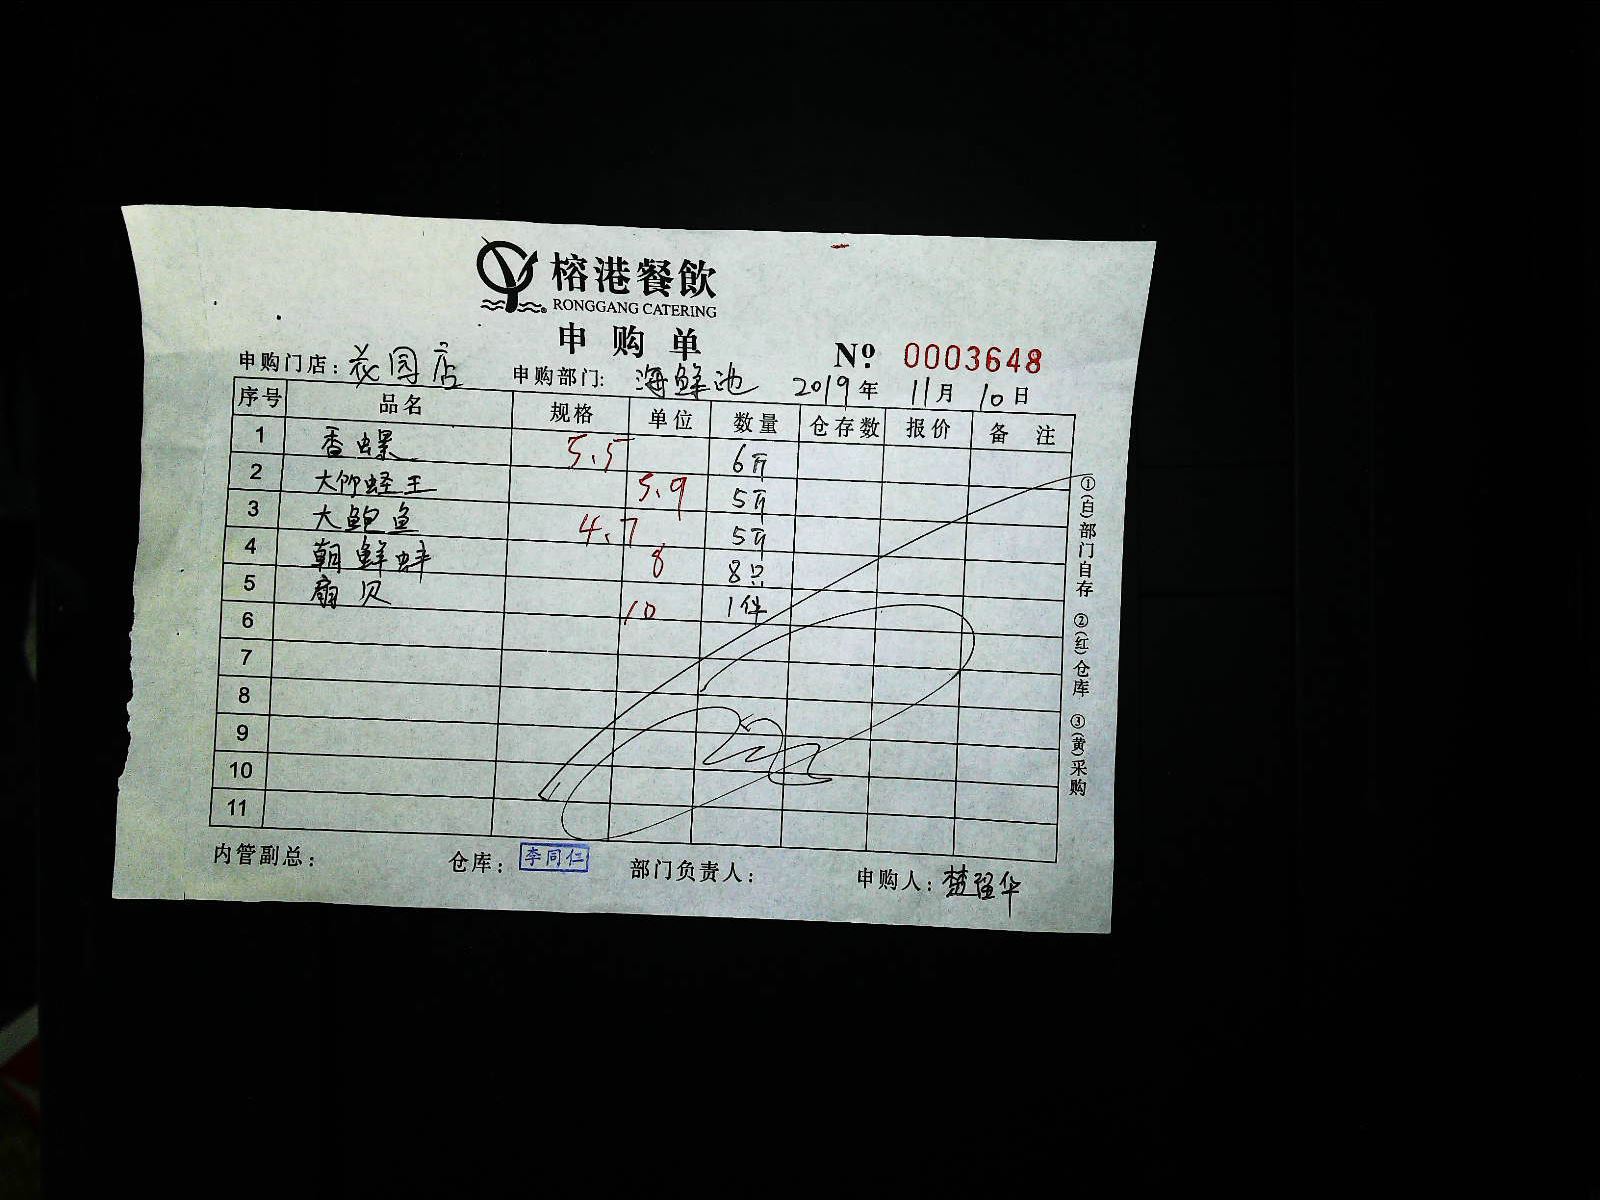 榕港餐飲
RONGGANG CATERING
申购单
№ 0003648
申购门店：花园店 申购部门：海鲜池 2019年11月10日
序号 品名 规格 单位 数量 仓存数 报价 备注
1 香螺 5.5 6斤
2 大竹蛏王 5.9 5斤
3 大鲍鱼 4.7 5斤
4 朝鲜蚌 8 8只
5 扇贝 10 1件
6
7
8
9
10
11
①(白)部门自存 ②(红)仓库 ③(黄)采购
内管副总： 仓库：李同仁 部门负责人： 申购人：楚留华